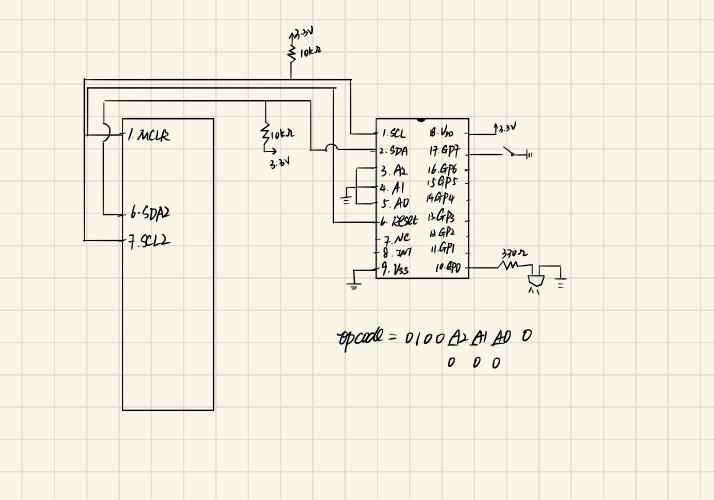 3.3V
10kΩ
1.MCLR
6.SDA2
7.SCL2
10kΩ
3.3V
1.SCL
2.SDA
3.A2
4.A1
5.A0
6.Reset
7.NC
8.INT
9.Vss
18.VDD
17.GP7
16.GP6
15GP5
14GP4
13.GP3
12.GP2
11.GP1
10.GP0
3.3V
330Ω
opcode = 0100 A2 A1 A0 0
0 0 0